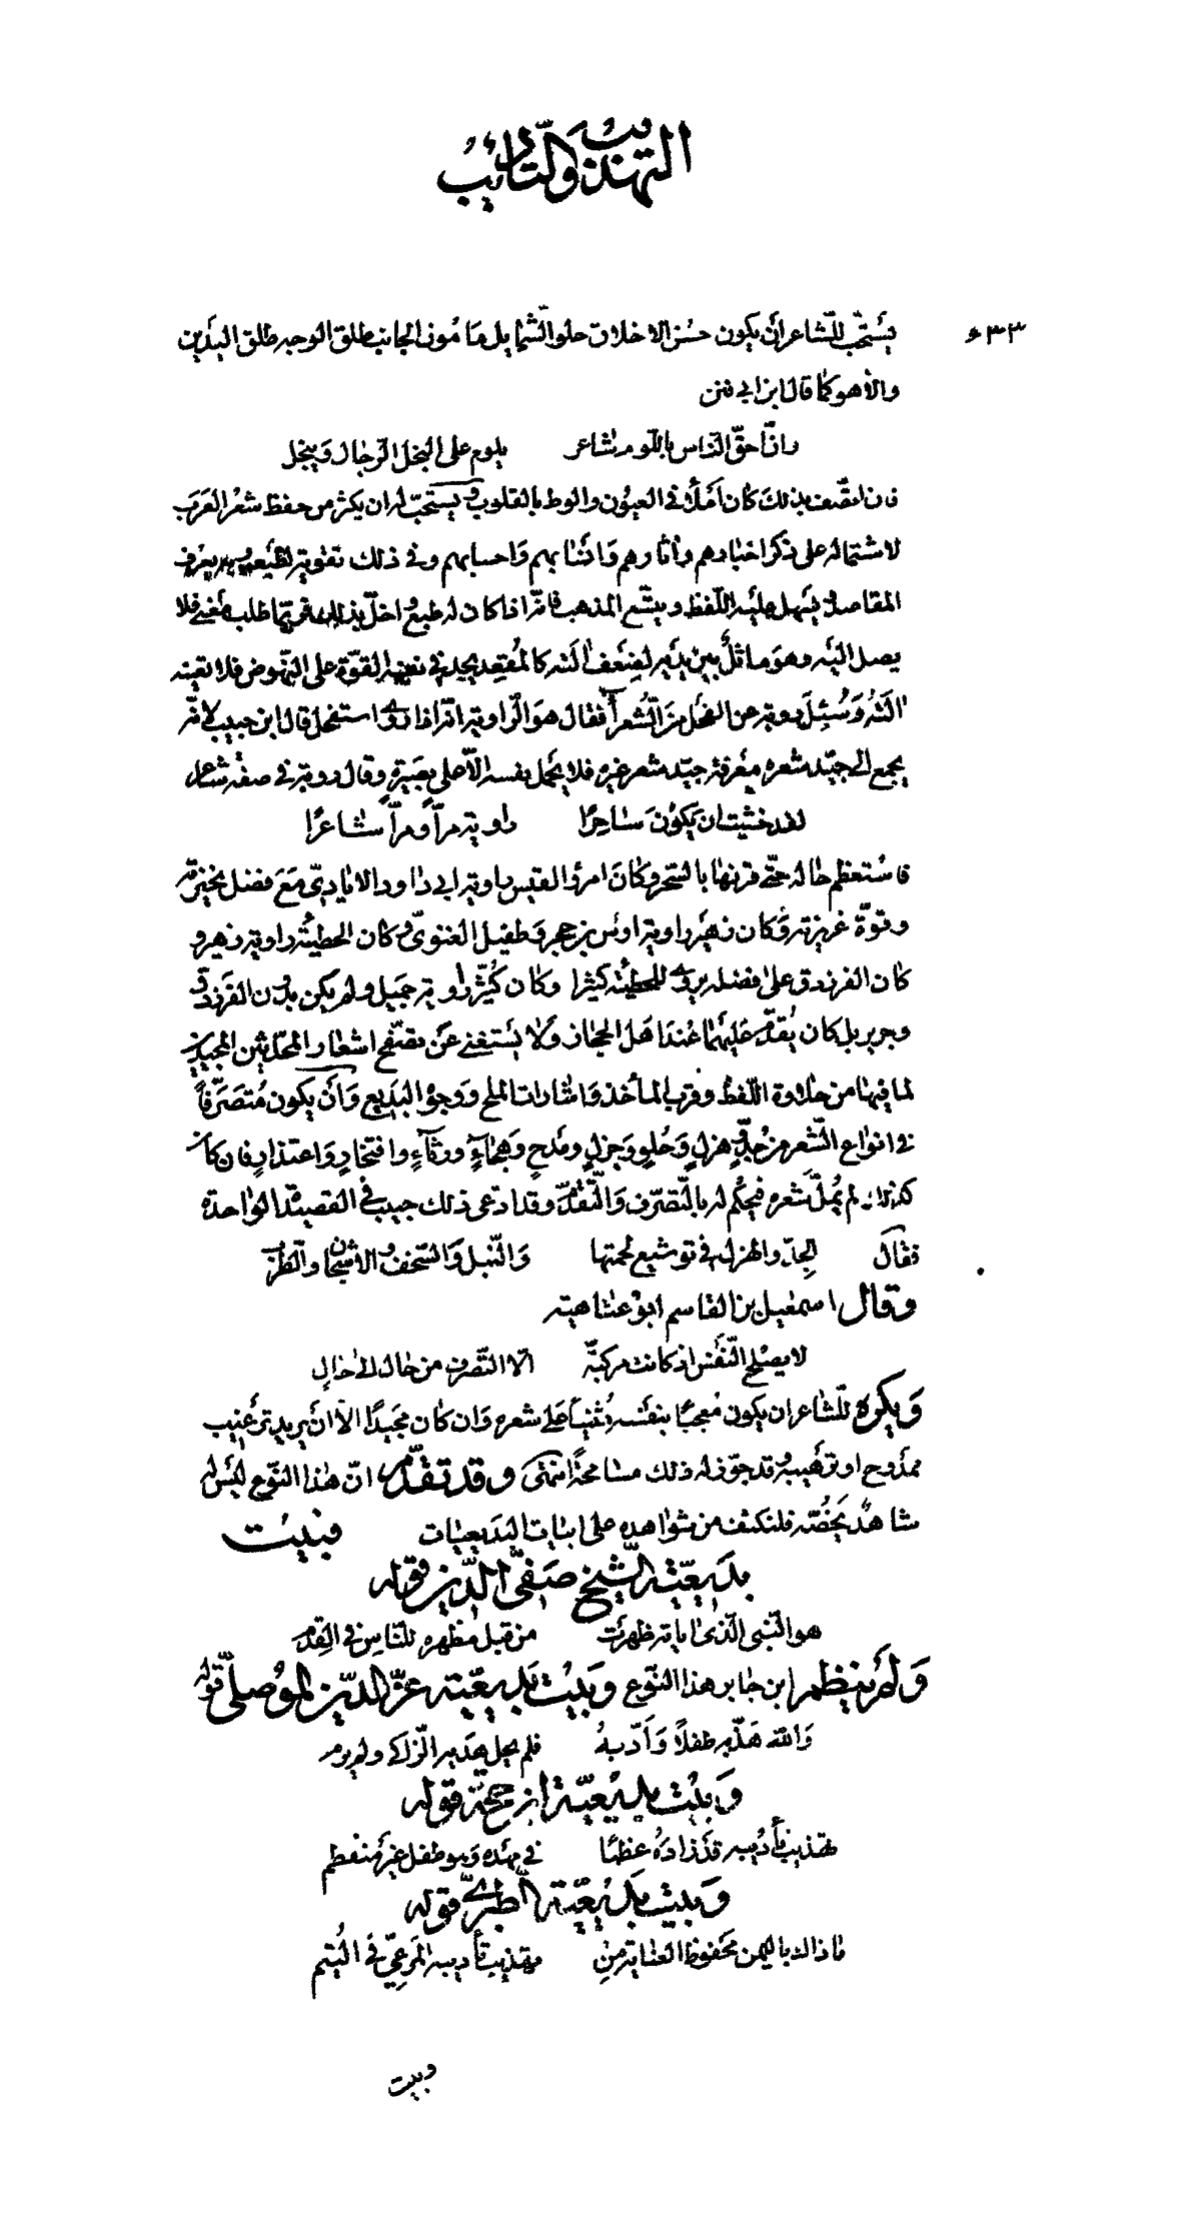 التهذيب والتأديب
٤٣٣
يستحب للشاعر أن يكون حسن الاخلاق حلو الشمايل مامون الجانب طلق الوجه طلق اليدين
والا هو كما قال ابن ابي فنن
وانّ احقّ الناس باللوم شاعر يلوم على البخل الرجال ويبخل
فان اتصف بذلك كان أملأ في العيون والوط بالقلوب ويستحبّ له ان يكثر من حفظ شعر العرب
لاشتماله على ذكر اخبارهم وآثارهم وانسابهم واحسابهم وفي ذلك تقوية لطبعه وبه يعرف
المقاصد ويسهل عليه اللفظ ويتسع المذهب فانه اذا كان له طبع واخلّ بذلك فربّما طلب معنى فلا
يصل اليه وهو ماثلٌ بين يديه لضعف آلته كالمُقعد يجد في نفسه القوّة على النهوض فلا تعينه
الآلة وسُئل رؤبة عن الفحل من الشعراء فقال هو الراوية انه اذا روى استفحل قال ابن حبيب لانه
يجمع الى جيّد شعره معرفة جيّد شعر غيره فلا يحمل نفسه الّا على بصيرة وقال رؤبة في صفة شاعر
لقد خشيت ان يكون ساحرًا راوية مرّاً ومرّاً شاعرًا
فاستعظم حاله حتّى قرنها بالسّحر وكان امرؤ القيس راوية ابي داود الايادي مع فضل نحيزته
وقوّة غريزته وكان زهير راوية اوس بن حجر وطفيل الغنويّ وكان الحطيئة راوية زهير و
كان الفرزدق على فضله يروي للحطيئة كثيرا وكان كُثَيّر راوية جميل ولم يكن بدون الفرزدق
وجرير بل كان يُقدّم عليهما عند اهل الحجاز ولا يستغني عن تصفّح اشعار المحدّثين المجيدين
لما فيها من حلاوة اللفظ وقرب المأخذ واشارات الملح ووجوه البديع وأن يكون مُتصرّفاً
في انواع الشعر من جدٍّ وهزلٍ وحُلوٍ وجزلٍ ومدحٍ وهجاءٍ ورثاءٍ وافتخارٍ واعتذارٍ فان كان
كذلك لم يُملّ شعره فيحكم له بالتصرّف والتقدّم وقد ادعى ذلك حبيب في القصيدة الواحدة
فقال الجدّ والهزل في توشيع لحمتها والنّبل والسّخف والاشجان والطرب
وقال اسمعيل بن القاسم ابو عتاهية
لا يصلح النّفس اذ كانت مركبة الّا التصرف من حال الى حالٍ
ويكره للشاعر ان يكون مُعجبًا بنفسه مُثنياً على شعره وان كان مجيدًا الّا أن يريد ترغيب
ممدوح او ترهيبه وقد جوّز له ذلك مسامحةً انتهى وقد تقدّم انّ هذا النّوع ليس له
شاهدٌ يخصّه فلنكتف من شواهده على ابيات البديعيات فبيت
بديعيّة الشيخ صفيّ الدّين قوله
هو النّبي الذي آياته ظهرت من قبل مظهره للناس في القدم
ولم ينظم ابن جابر هذا النوع وبيت بديعيّة عزّ الدّين الموصلّي قوله
والله هذّبه طفلاً وأدّبه فلم يحل هديه الزاكي ولم يرم
وبيت بديعيّة ابن حجّة قوله
تهذيب تأديبه قد زاده عظمًا في مهده وهو طفل غير منفطم
وبيت بديعيّة الطبريّ قوله
ماذاك باليمن محفوظ العناية من تهذيب تأديبه المرعيّ في اليُتم
وبيت